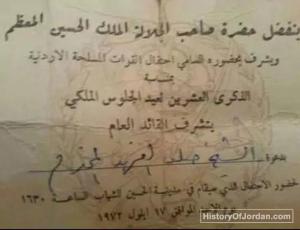 يتفضل حضرة صاحب الجلالة الملك الحسين المعظم
ويشرف بحضوره السامي احتفال القوات المسلحة الاردنية
بمناسبة
الذكرى العشرين لعيد الجلوس الملكي
يتشرف القائد العام
بدعوة الشيخ
لحضور الاحتفال الذي سيقام في مدينة الحسين للشباب الساعة ١٦٣٠
الموافق ١٧ ايلول ١٩٧٢
HistoryOfJordan.com